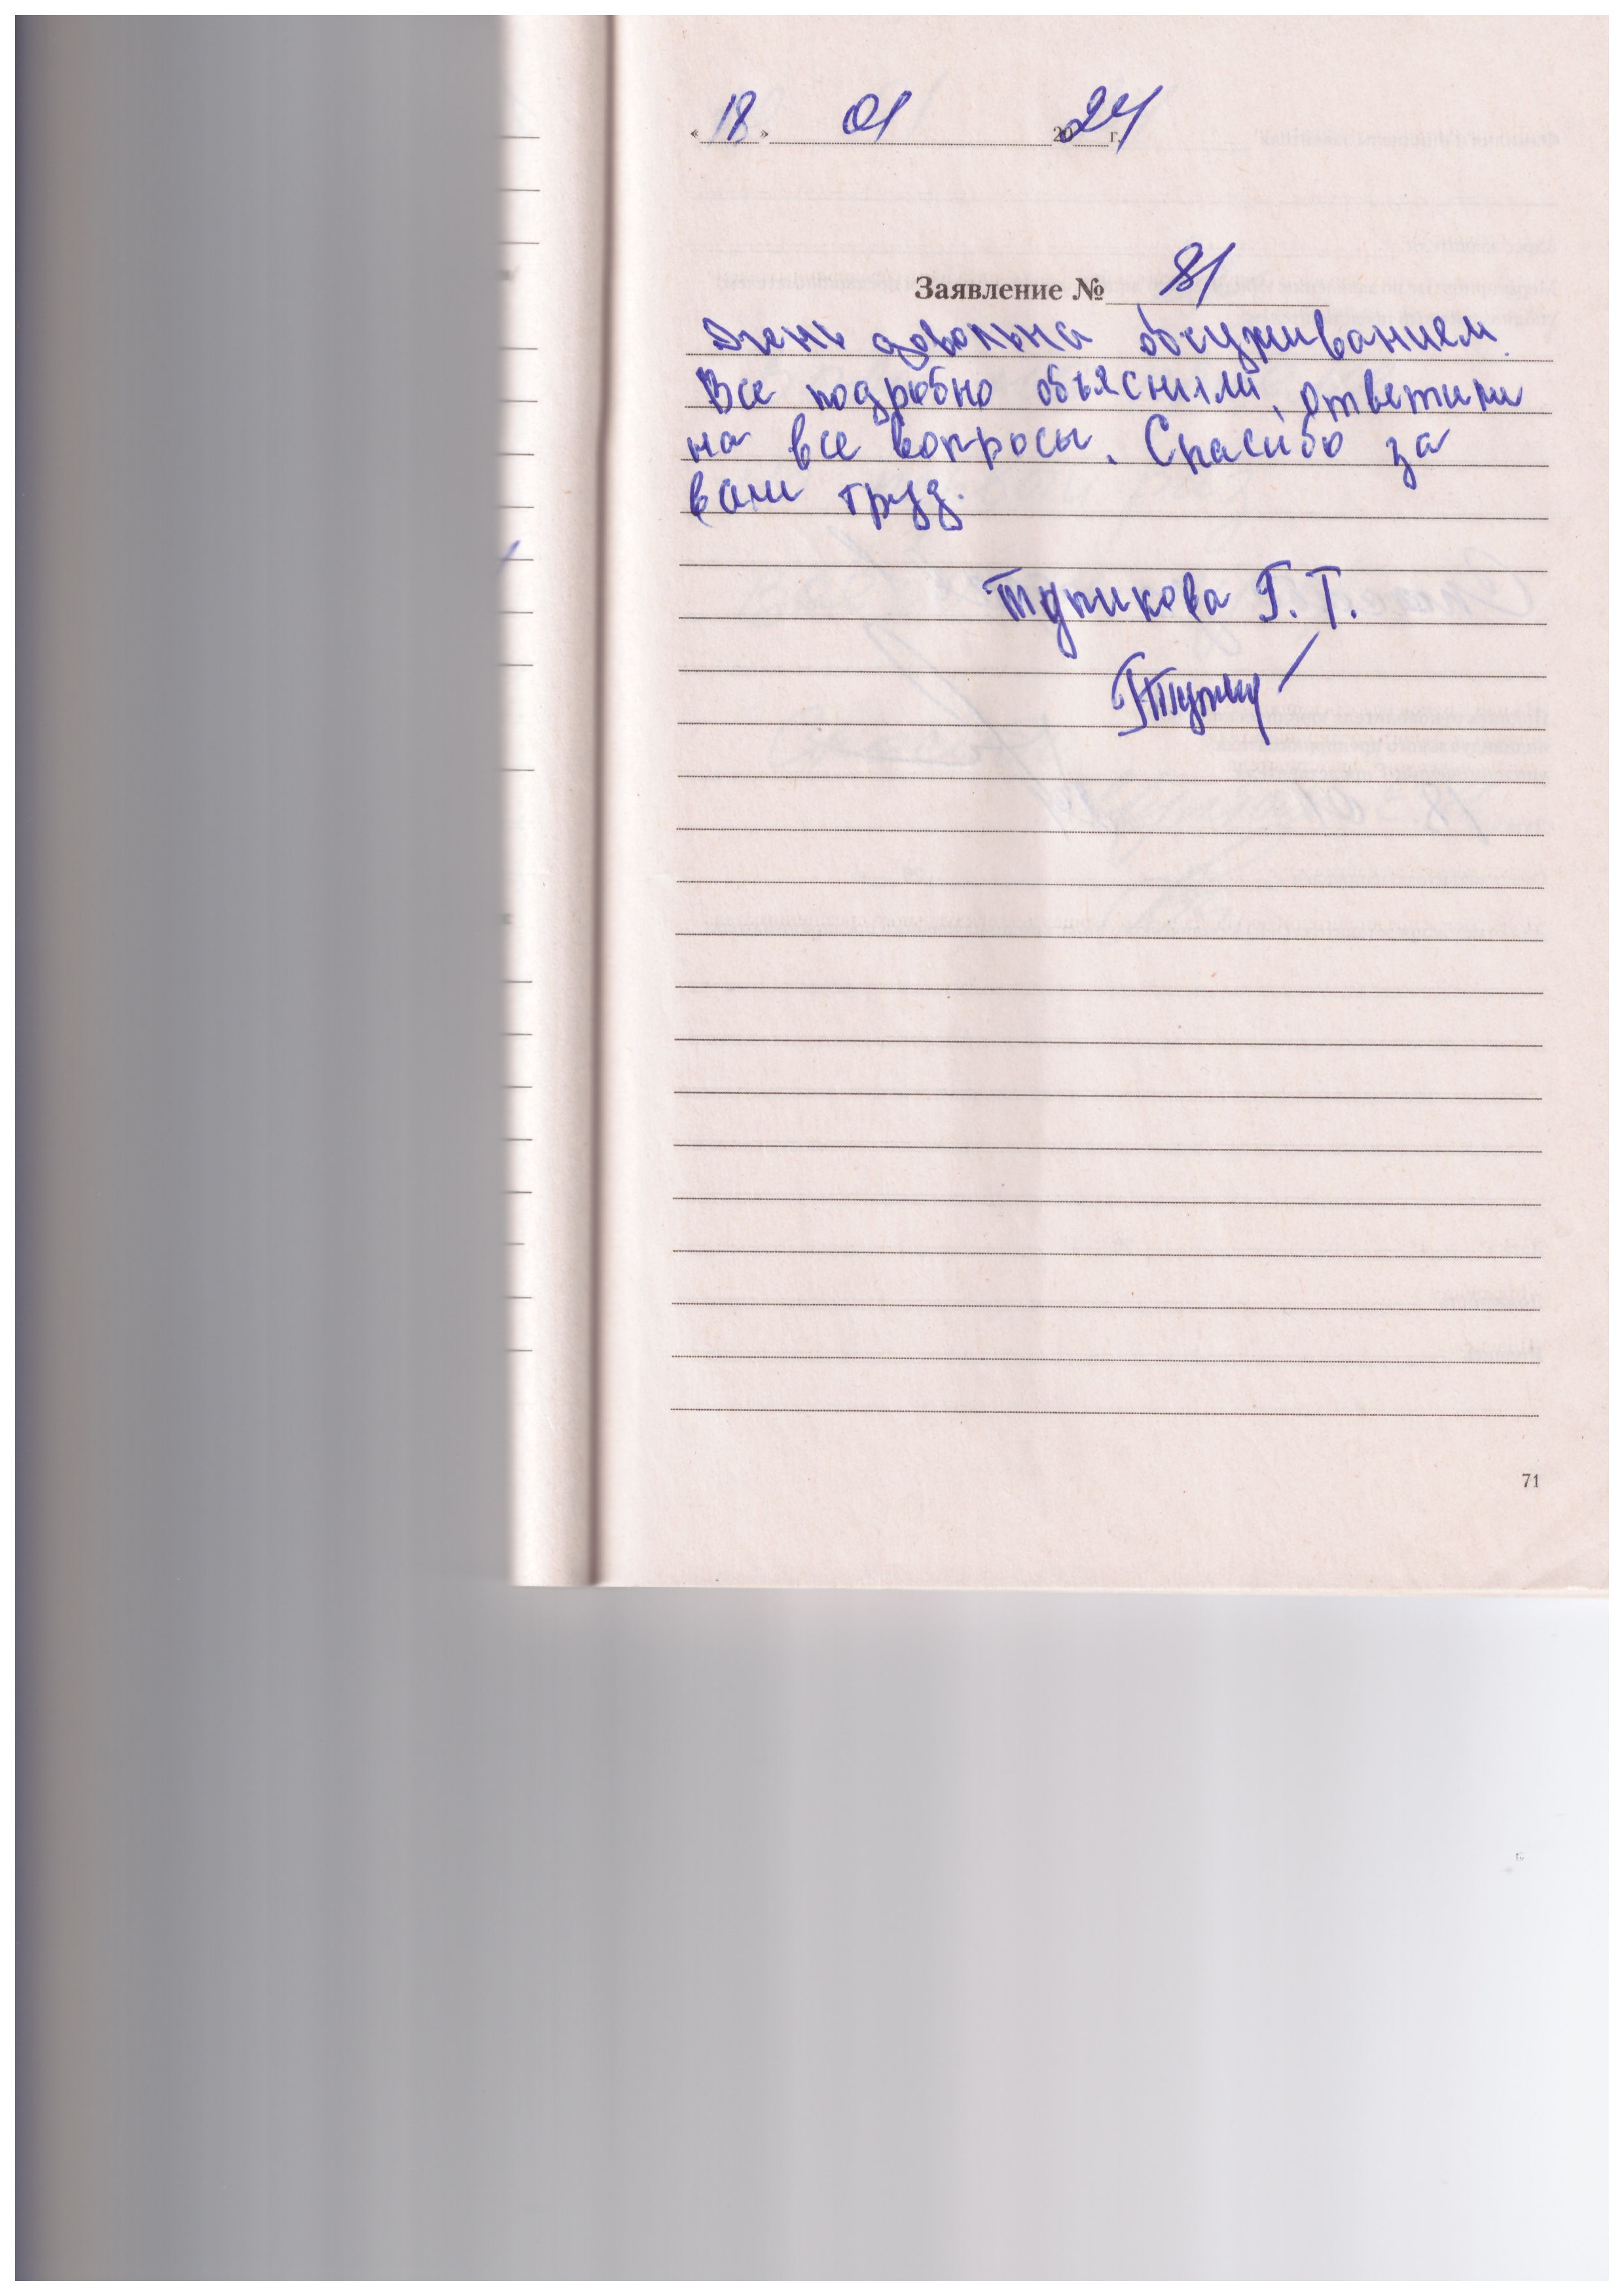 « 18. » 01 2024 г.
Заявление № 81
Очень довольна обслуживанием.
Все подробно объяснили, ответили
на все вопросы. Спасибо за
ваш труд.
Тупикова Г. Т.
71